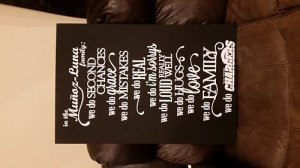 in the
Muñoz-Luna
family:
we do SECOND
CHANCES
we do grace
we do MISTAKES
we do REAL
we do I'm sorrys
we do LOUD REALLY WELL
we do HUGS
we do love
we do FAMILY
we do CHARGERS